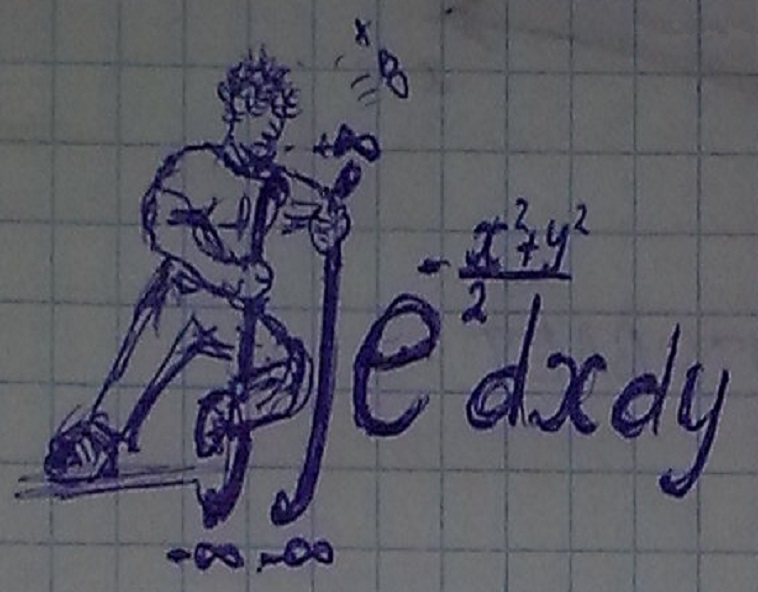 +∞
∫∫ e^{-\frac{x^2+y^2}{2}} dxdy
-∞ -∞